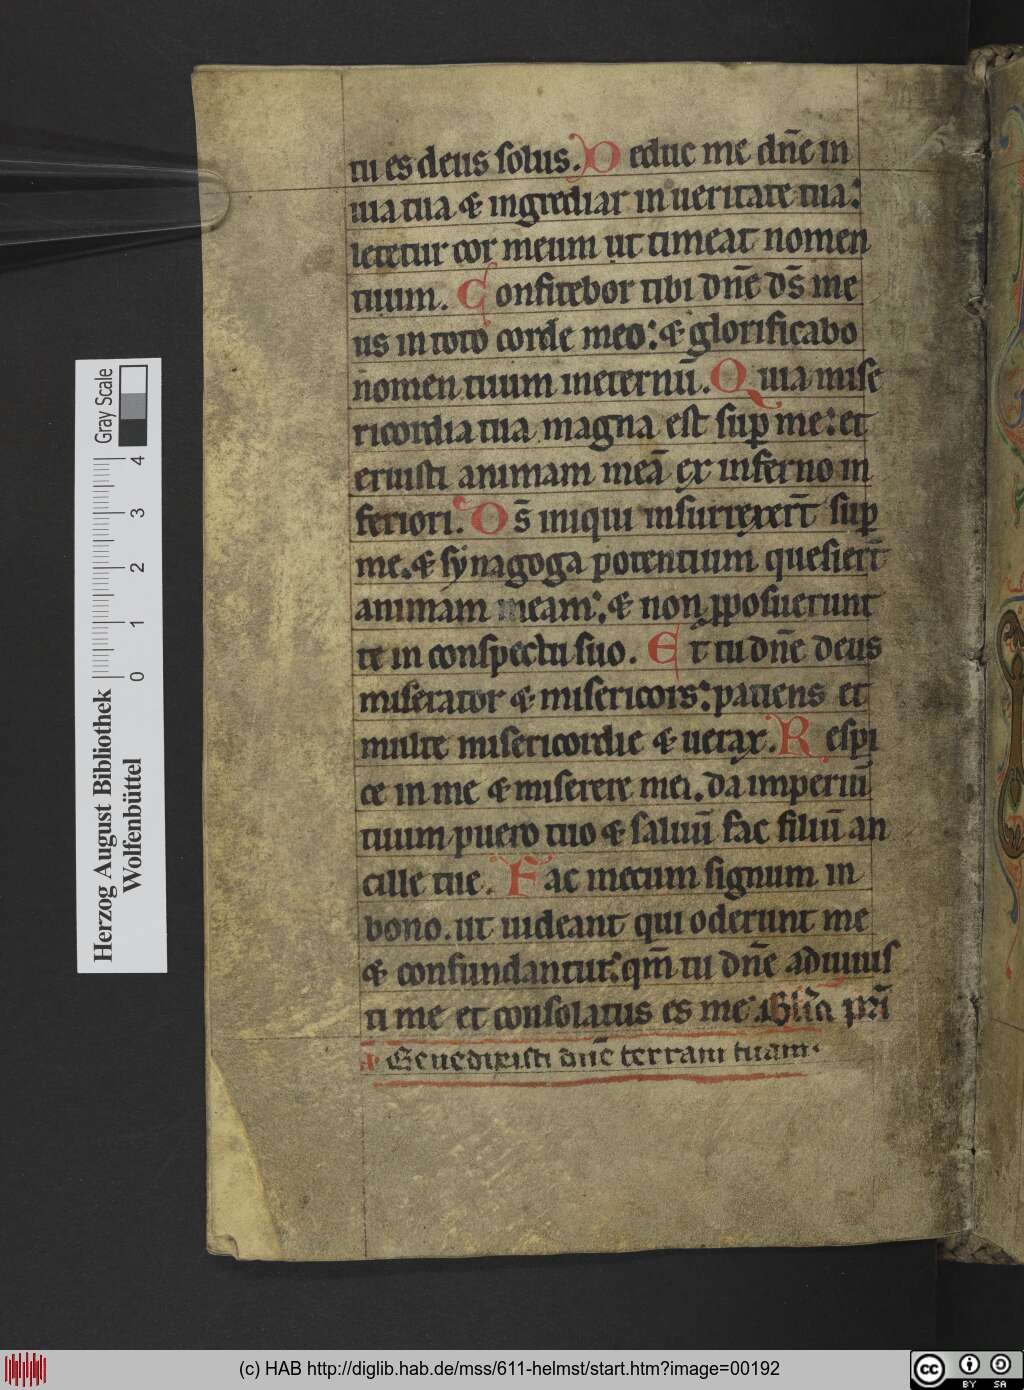 tu es deus solus. Deduc me dn̄e in
uia tua & ingrediar in ueritate tua:
letetur cor meum ut timeat nomen
tuum. Confitebor tibi dn̄e ds̄ me
us in toto corde meo: & glorificabo
nomen tuum ineternū. Quia mise
ricordia tua magna est sup̄ me: et
eruisti animam meā ex inferno in
feriori. Os̄ iniqui insurrexert̄ sup̄
me. & synagoga potentium quesiert̄
animam meam: & non p̱posuerunt
te in conspectu suo. Et tu dn̄e deus
miserator & misericors: patiens et
multe misericordie & uerax. Respi
ce in me & miserere mei. da imperiū
tuum puero tuo & saluū fac filiū an
cille tue. Fac mecum signum in
bono. ut uideant qui oderunt me
& confundantur: qm̄ tu dn̄e adiuuis
ti me et consolatus es me: Gl̄ia pr̄i
A Benedixisti dn̄e terram tuam.
Herzog August Bibliothek
Wolfenbüttel
0 1 2 3 4
Gray Scale
(c) HAB http://diglib.hab.de/mss/611-helmst/start.htm?image=00192
cc BY SA